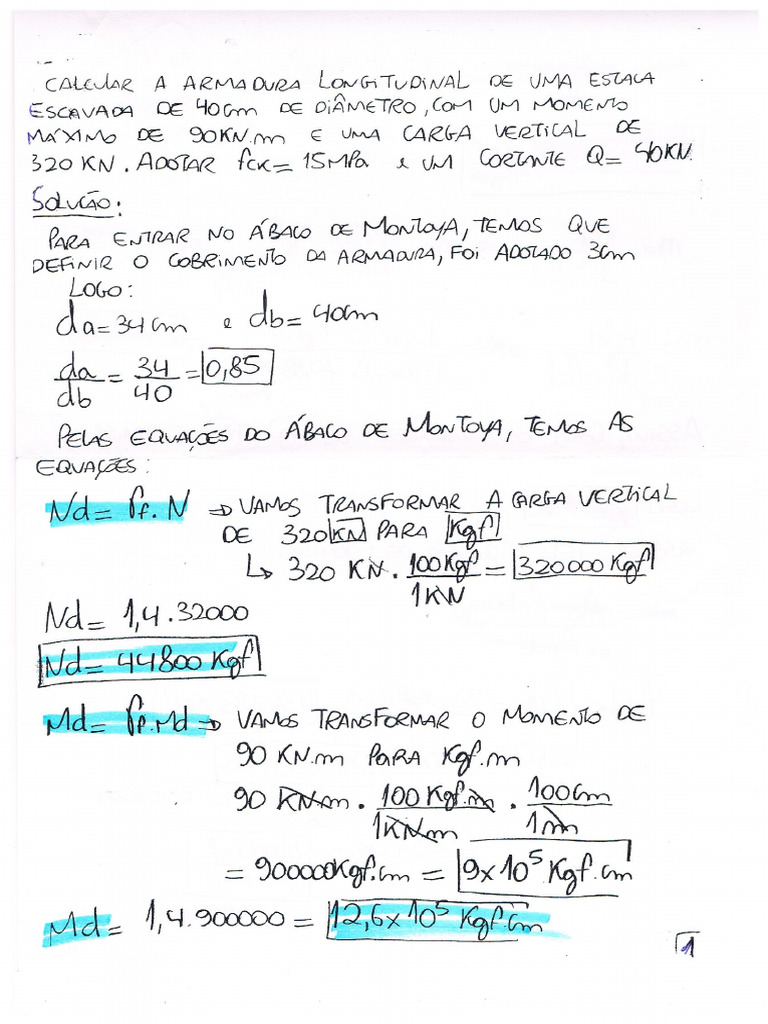 CALCULAR A ARMADURA LONGITUDINAL DE UMA ESTACA
ESCAVADA DE 40cm DE DIÂMETRO, COM UM MOMENTO
MÁXIMO DE 90KN.m E UMA CARGA VERTICAL DE
320 KN. ADOTAR fck= 15MPa e UM CORTANTE Q= 40KN.
SOLUÇÃO:
PARA ENTRAR NO ÁBACO DE MONTOYA, TEMOS QUE
DEFINIR O COBRIMENTO DA ARMADURA, FOI ADOTADO 3cm
LOGO:
da=34cm e db=40cm
da/db = 34/40 = 0,85
PELAS EQUAÇÕES DO ÁBACO DE MONTOYA, TEMOS AS
EQUAÇÕES:
Nd= γf.N → VAMOS TRANSFORMAR A CARGA VERTICAL
DE 320KN PARA Kgf
↳ 320 KN . 100Kgf/1KN = 320000 Kgf
Nd= 1,4.32000
Nd= 44800 Kgf
Md= γf.Md → VAMOS TRANSFORMAR O MOMENTO DE
90 KN.m PARA Kgf.m
90 KN.m . 100 Kgf.m/1KN.m . 100cm/1m
= 900000Kgf.cm = 9x10⁵ Kgf.cm
Md= 1,4.900000 = 12,6x10⁵ Kgf.cm
1